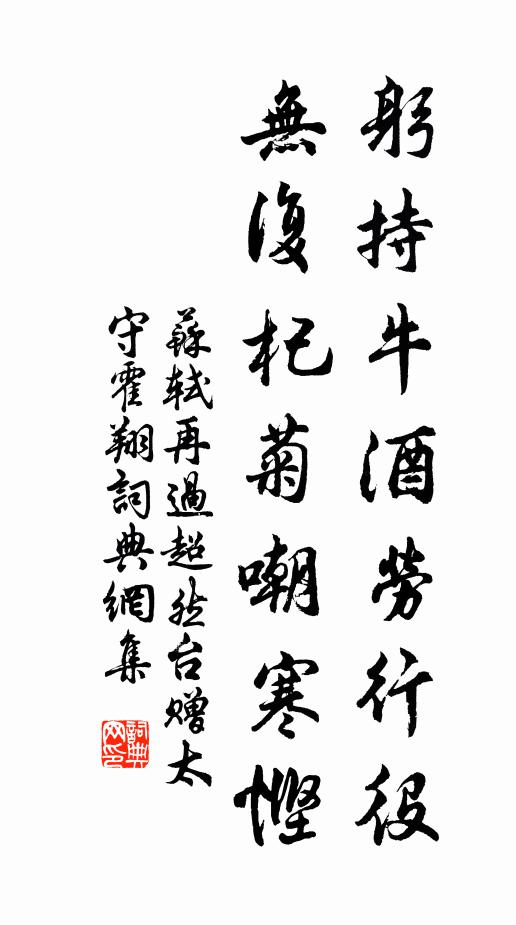 躬持牛酒勞行役
無復杞菊嘲寒慳
蘇軾再過超然台赠太
守霍翔詞典網集
詞典